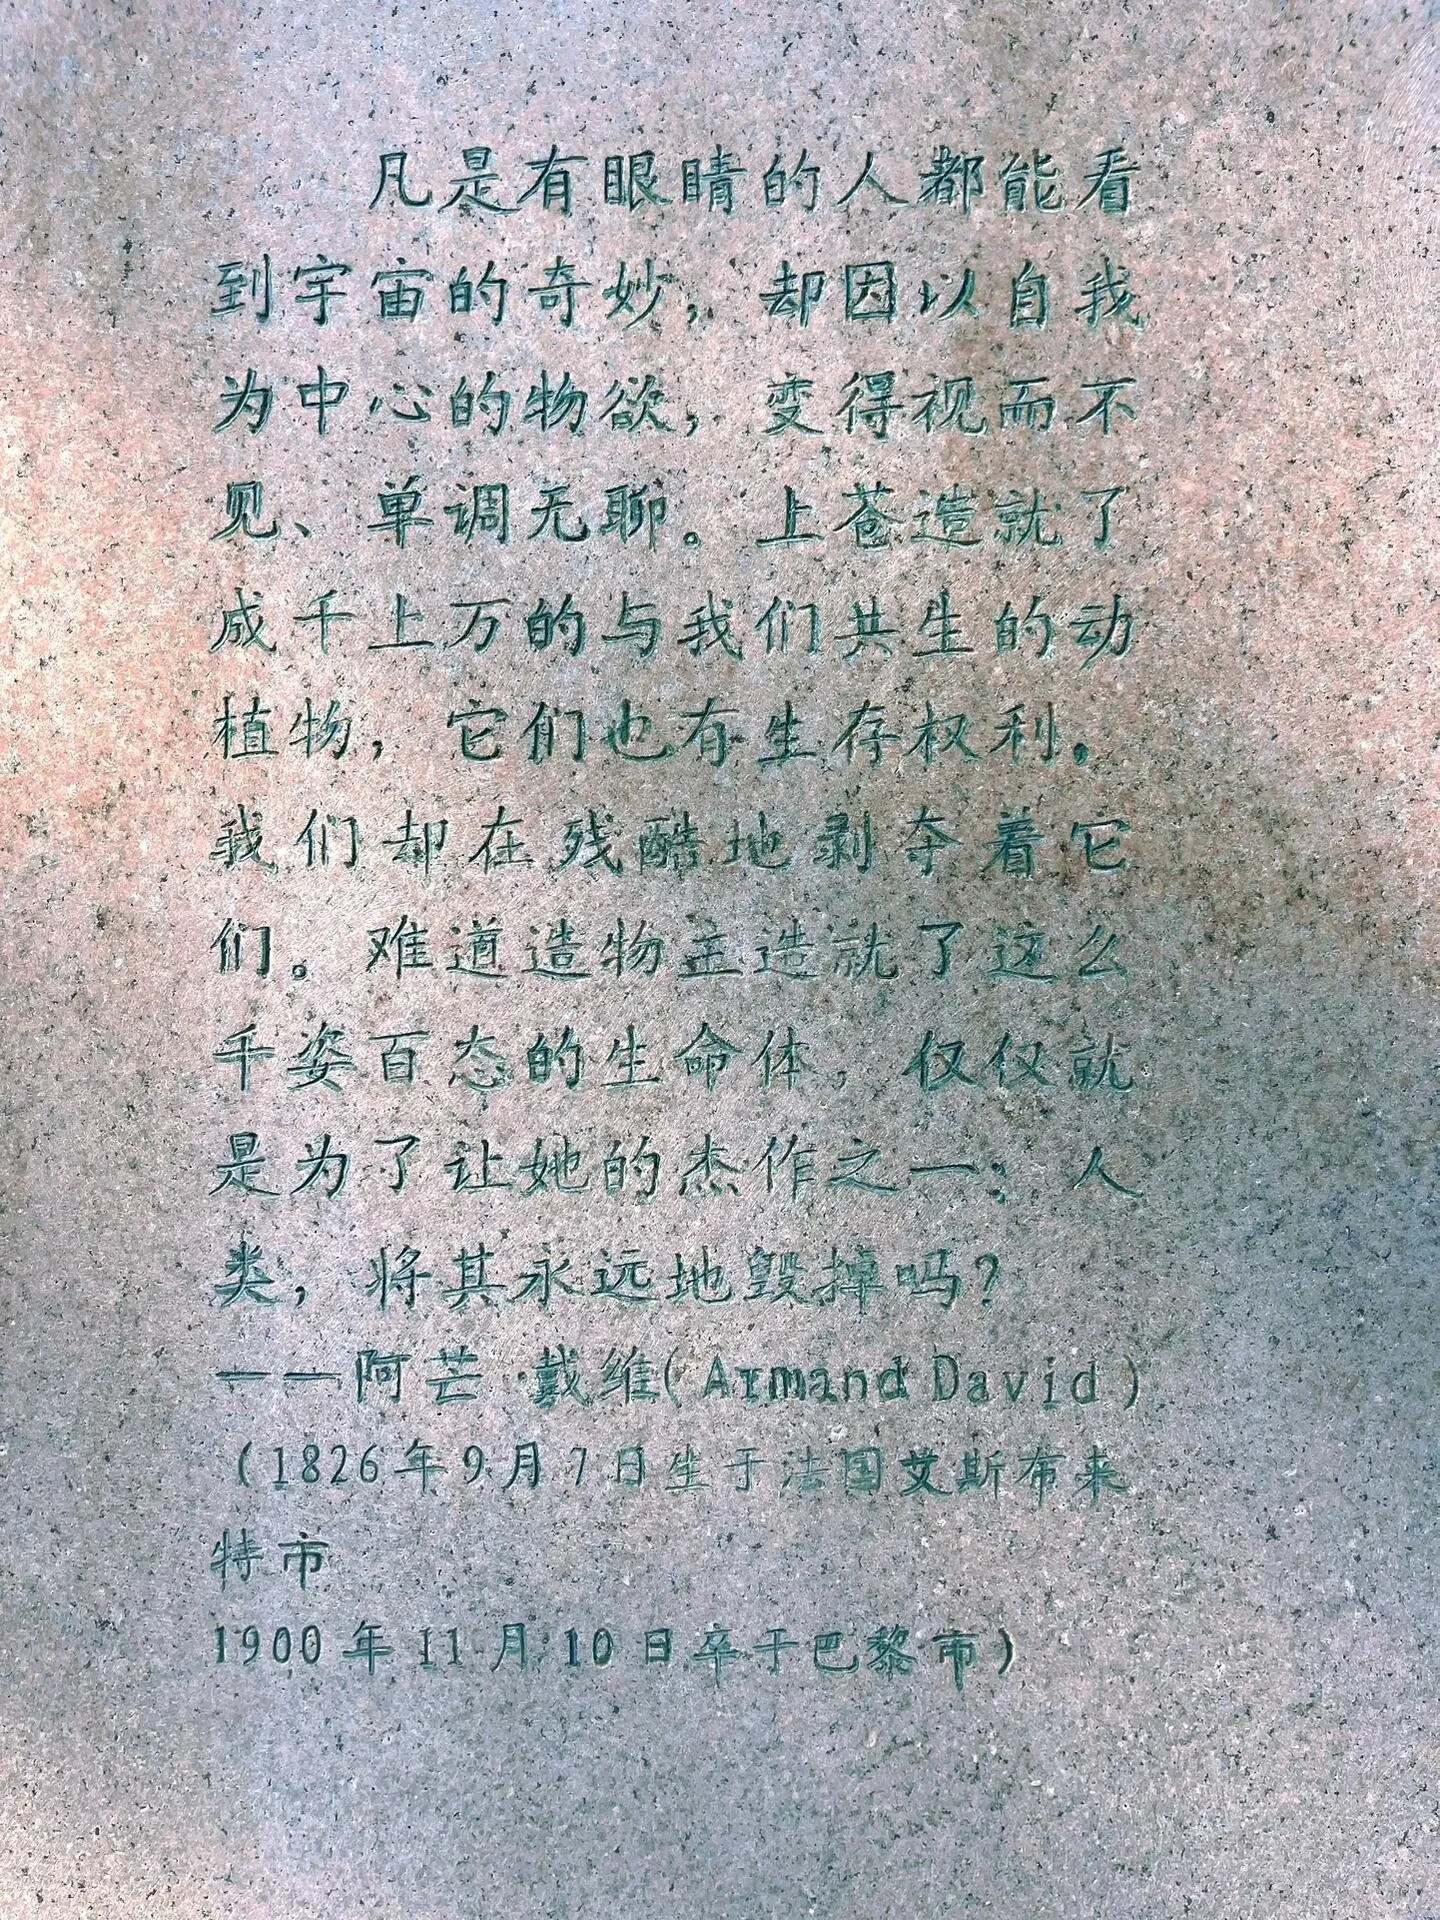 凡是有眼睛的人都能看
到宇宙的奇妙，却因以自我
为中心的物欲，变得视而不
见、单调无聊。上苍造就了
成千上万的与我们共生的动
植物，它们也有生存权利，
我们却在残酷地剥夺着它
们。难道造物主造就了这么
千姿百态的生命体，仅仅就
是为了让她的杰作之一；人
类，将其永远地毁掉吗？
——阿芒·戴维(Armand David)
(1826年9月7日生于法国艾斯布来
特市
1900年11月10日卒于巴黎市)